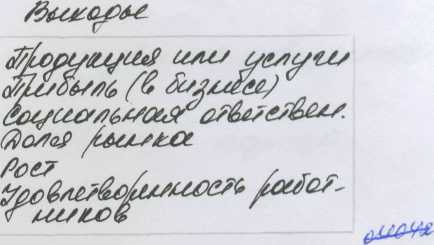 Выходы
Продукция или услуги
Прибыль (в бизнесе)
Социальная ответствен.
Доля рынка
Рост
Удовлетворенность работ-
ников